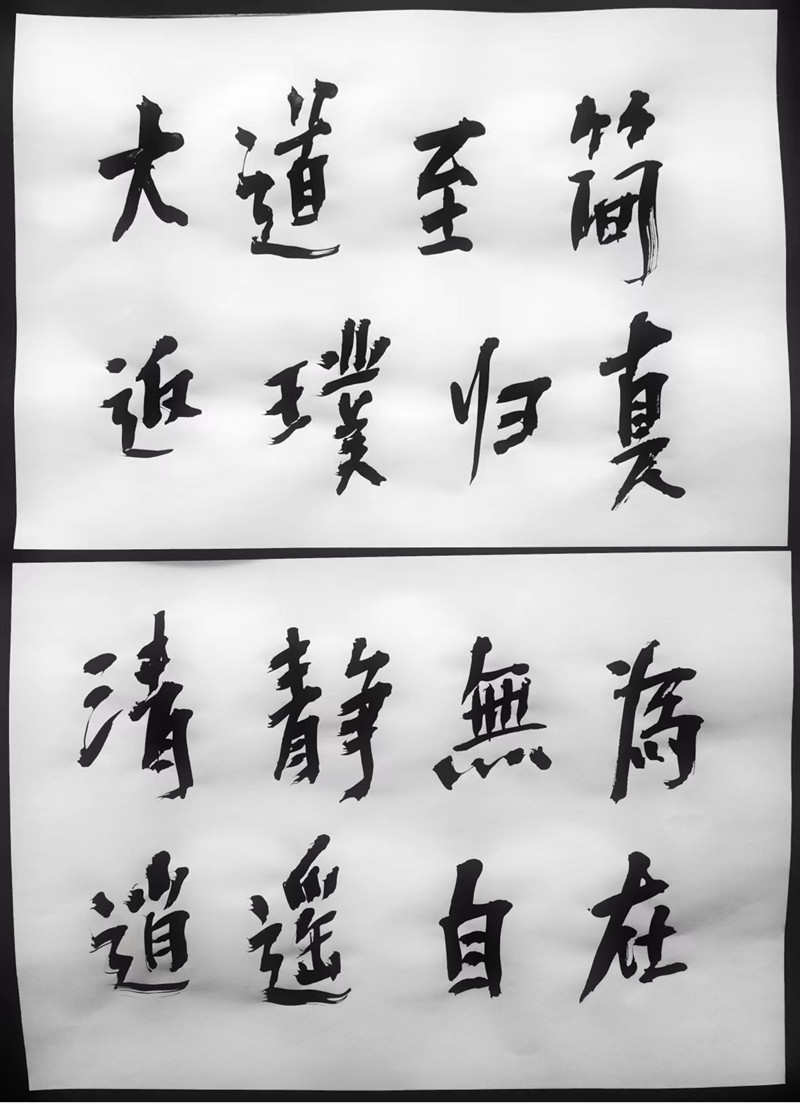 大道至简
返璞归真
清静無為
逍遥自在